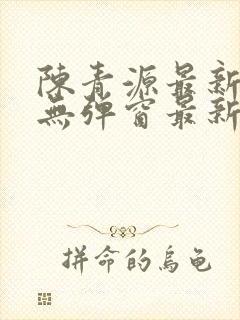 陳青源最新
無彈窗最新
拼命的烏龜